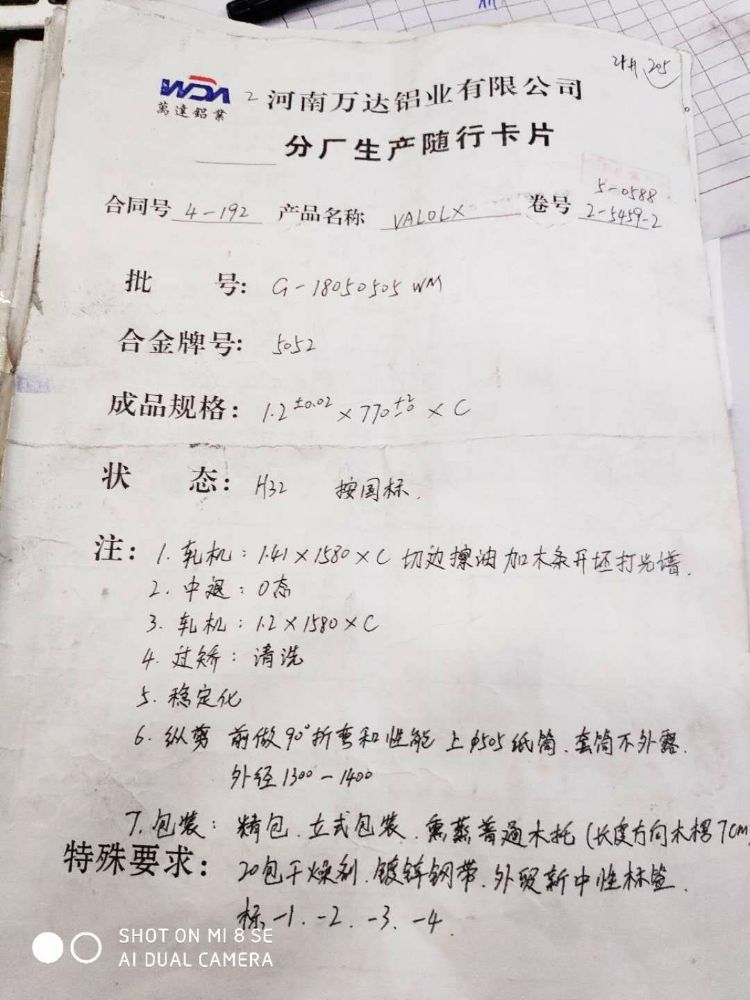 WDA
萬達鋁業
河南万达铝业有限公司
分厂生产随行卡片
5-0588
合同号 4-192 产品名称 VALOLX 卷号 2-5459-2
批 号: G-18050505 WM
合金牌号: 5052
成品规格: 1.2 ±0.02 × 770 +2 -0 × C
状 态: H32 按国标.
注: 1. 轧机: 1.41×1580×C 切边擦油加木条开坯打光谱.
2. 中退: O态
3. 轧机: 1.2×1580×C
4. 过矫: 清洗
5. 稳定化
6. 纵剪 前做90°折弯和性能 上φ505纸筒. 套筒不外露.
外径1300-1400
7. 包装: 精包. 立式包装. 熏蒸普通木托 (长度方向木楞7cm)
特殊要求: 20包干燥剂. 镀锌钢带. 外贸新中性标签.
标-1. -2. -3. -4.
SHOT ON MI 8 SE
AI DUAL CAMERA